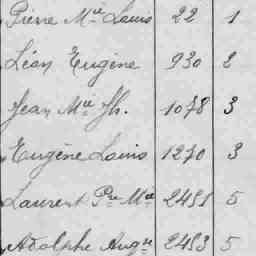 Pierre Mie Louis 22 1
Léon Eugène 930 2
Jean Mie Jh. 1078 3
Eugène Louis 1270 3
Laurent Pre Mie 2451 5
Adolphe Augte 2453 5